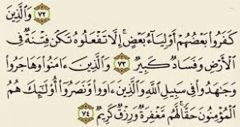 ۝٧٢ وَٱلَّذِينَ
كَفَرُوا۟ بَعْضُهُمْ أَوْلِيَآءُ بَعْضٍ ۚ إِلَّا تَفْعَلُوهُ تَكُن فِتْنَةٌ فِى
ٱلْأَرْضِ وَفَسَادٌ كَبِيرٌ ۝٧٣ وَٱلَّذِينَ ءَامَنُوا۟ وَهَاجَرُوا۟
وَجَٰهَدُوا۟ فِى سَبِيلِ ٱللَّهِ وَٱلَّذِينَ ءَاوَوا۟ وَّنَصَرُوٓا۟ أُو۟لَٰٓئِكَ هُمُ
ٱلْمُؤْمِنُونَ حَقًّا ۚ لَّهُم مَّغْفِرَةٌ وَرِزْقٌ كَرِيمٌ ۝٧٤